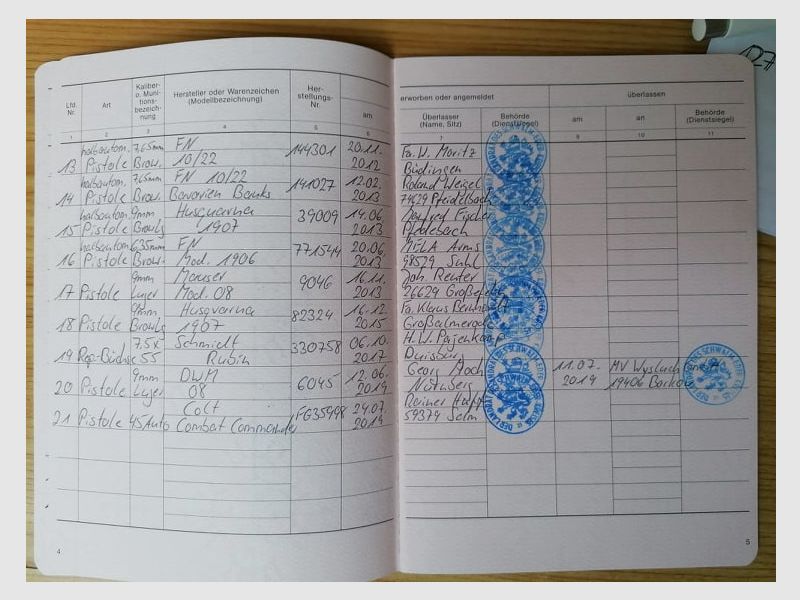 127
Lfd. Nr.
Art
Kaliber- o. Muni- tions- bezeich- nung
Hersteller oder Warenzeichen (Modellbezeichnung)
Her- stellungs- Nr.
am
1 2 3 4 5 6
halbautom. 7,65mm FN 20.11.
13 Pistole Brow. 10/22 144301 2012
halbautom. 7,65mm FN 10/22 12.02.
14 Pistole Brow. 141027 2013
halbautom. 9mm Husqvarna 14.06.
15 Pistole 1907 39009 2013
halbautom. 6,35mm FN 20.06.
16 Pistole Brow. Mod. 1906 771544 2013
9mm Mauser 16.11.
17 Pistole Luger Mod. 08 9046 2013
9mm Husqvarna 16.12.
18 Pistole 1907 82324 2015
7,5x Schmidt 06.10.
19 Rep-Büchse 55 Rubin 330758 2017
9mm DWM 12.06.
20 Pistole Luger 08 6045 2019
Colt 24.07.
21 Pistole 45 Auto Combat Commander 2019
4
erworben oder angemeldet
überlassen
Überlasser (Name, Sitz)
Behörde (Dienstsiegel)
am
an
Behörde (Dienstsiegel)
7 9 10 11
Fa. W. Moritz
Büdingen
Roland Weigel
74629 Pfedelbach
Manfred Fischer
Pfedelbach
MILA Arms
98529 Suhl
Joh. Reuter
26629 Großefehn
Fa. Klaus Bernhardt
Großalmerode
Duisburg
Georg 11.07. MV
2019 19406
Reiner
59379 Selm
5